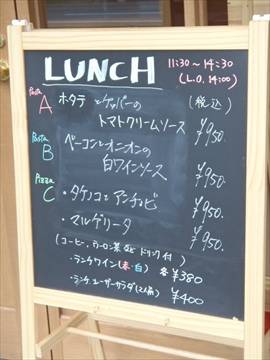 LUNCH 11:30~14:30
(L.O. 14:00)
Pasta A ホタテとケッパーの (税込)
トマトクリームソース ¥950.
Pasta B ベーコンとオニオンの
白ワインソース ¥950.
Pizza C ・タケノコとアンチョビ ¥950.
・マルゲリータ ¥950.
(コーヒー、ウーロン茶 など ドリンク付)
・ランチワイン(赤・白) 各 ¥380
・ランチューザーサラダ(2人前) ¥400